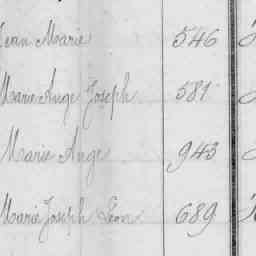 Jean Marie 546
Marie Ange Joseph 581
Marie Ange 943
Marie Joseph Léon 689